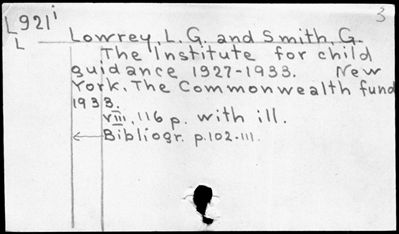 L921i 3
L Lowrey, L. G. and Smith, G.
The Institute for child
guidance 1927-1933. New
York, The Commonwealth fund
1933.
VIII, 116 p. with ill.
Bibliogr. p.102-111.